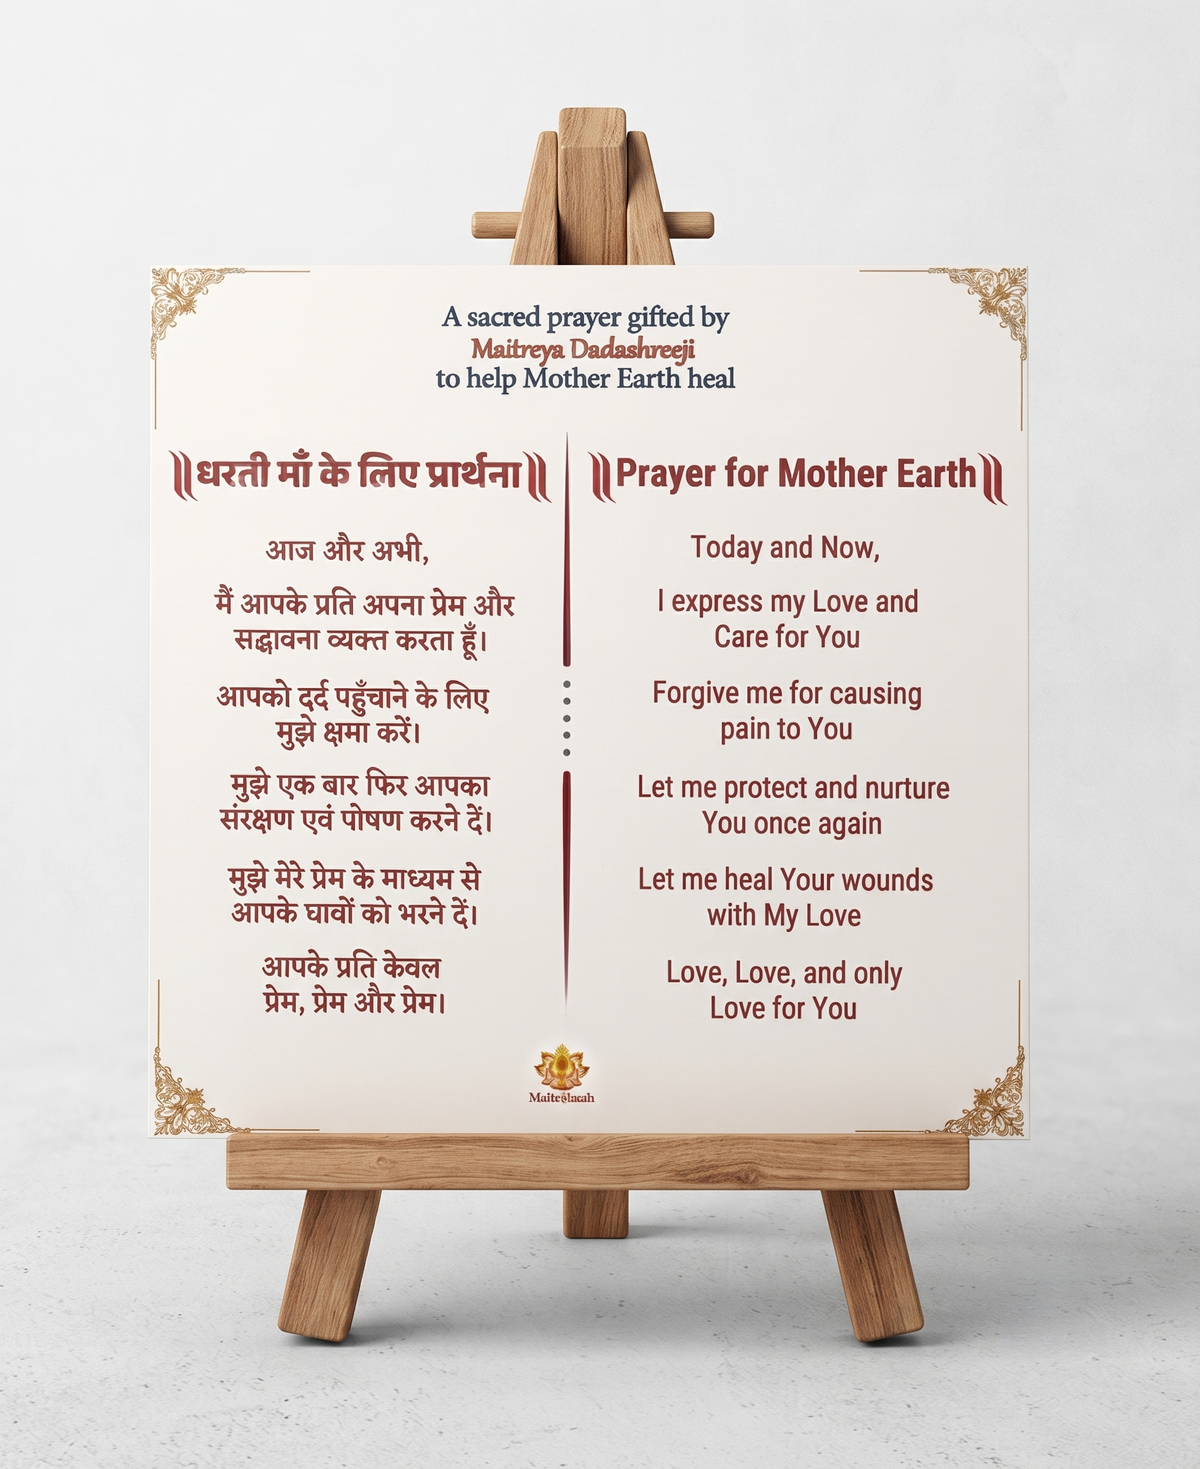 A sacred prayer gifted by
Maitreya Dadashreeji
to help Mother Earth heal
॥धरती माँ के लिए प्रार्थना॥
आज और अभी,
मैं आपके प्रति अपना प्रेम और
सद्भावना व्यक्त करता हूँ।
आपको दर्द पहुँचाने के लिए
मुझे क्षमा करें।
मुझे एक बार फिर आपका
संरक्षण एवं पोषण करने दें।
मुझे मेरे प्रेम के माध्यम से
आपके घावों को भरने दें।
आपके प्रति केवल
प्रेम, प्रेम और प्रेम।
॥Prayer for Mother Earth॥
Today and Now,
I express my Love and
Care for You
Forgive me for causing
pain to You
Let me protect and nurture
You once again
Let me heal Your wounds
with My Love
Love, Love, and only
Love for You